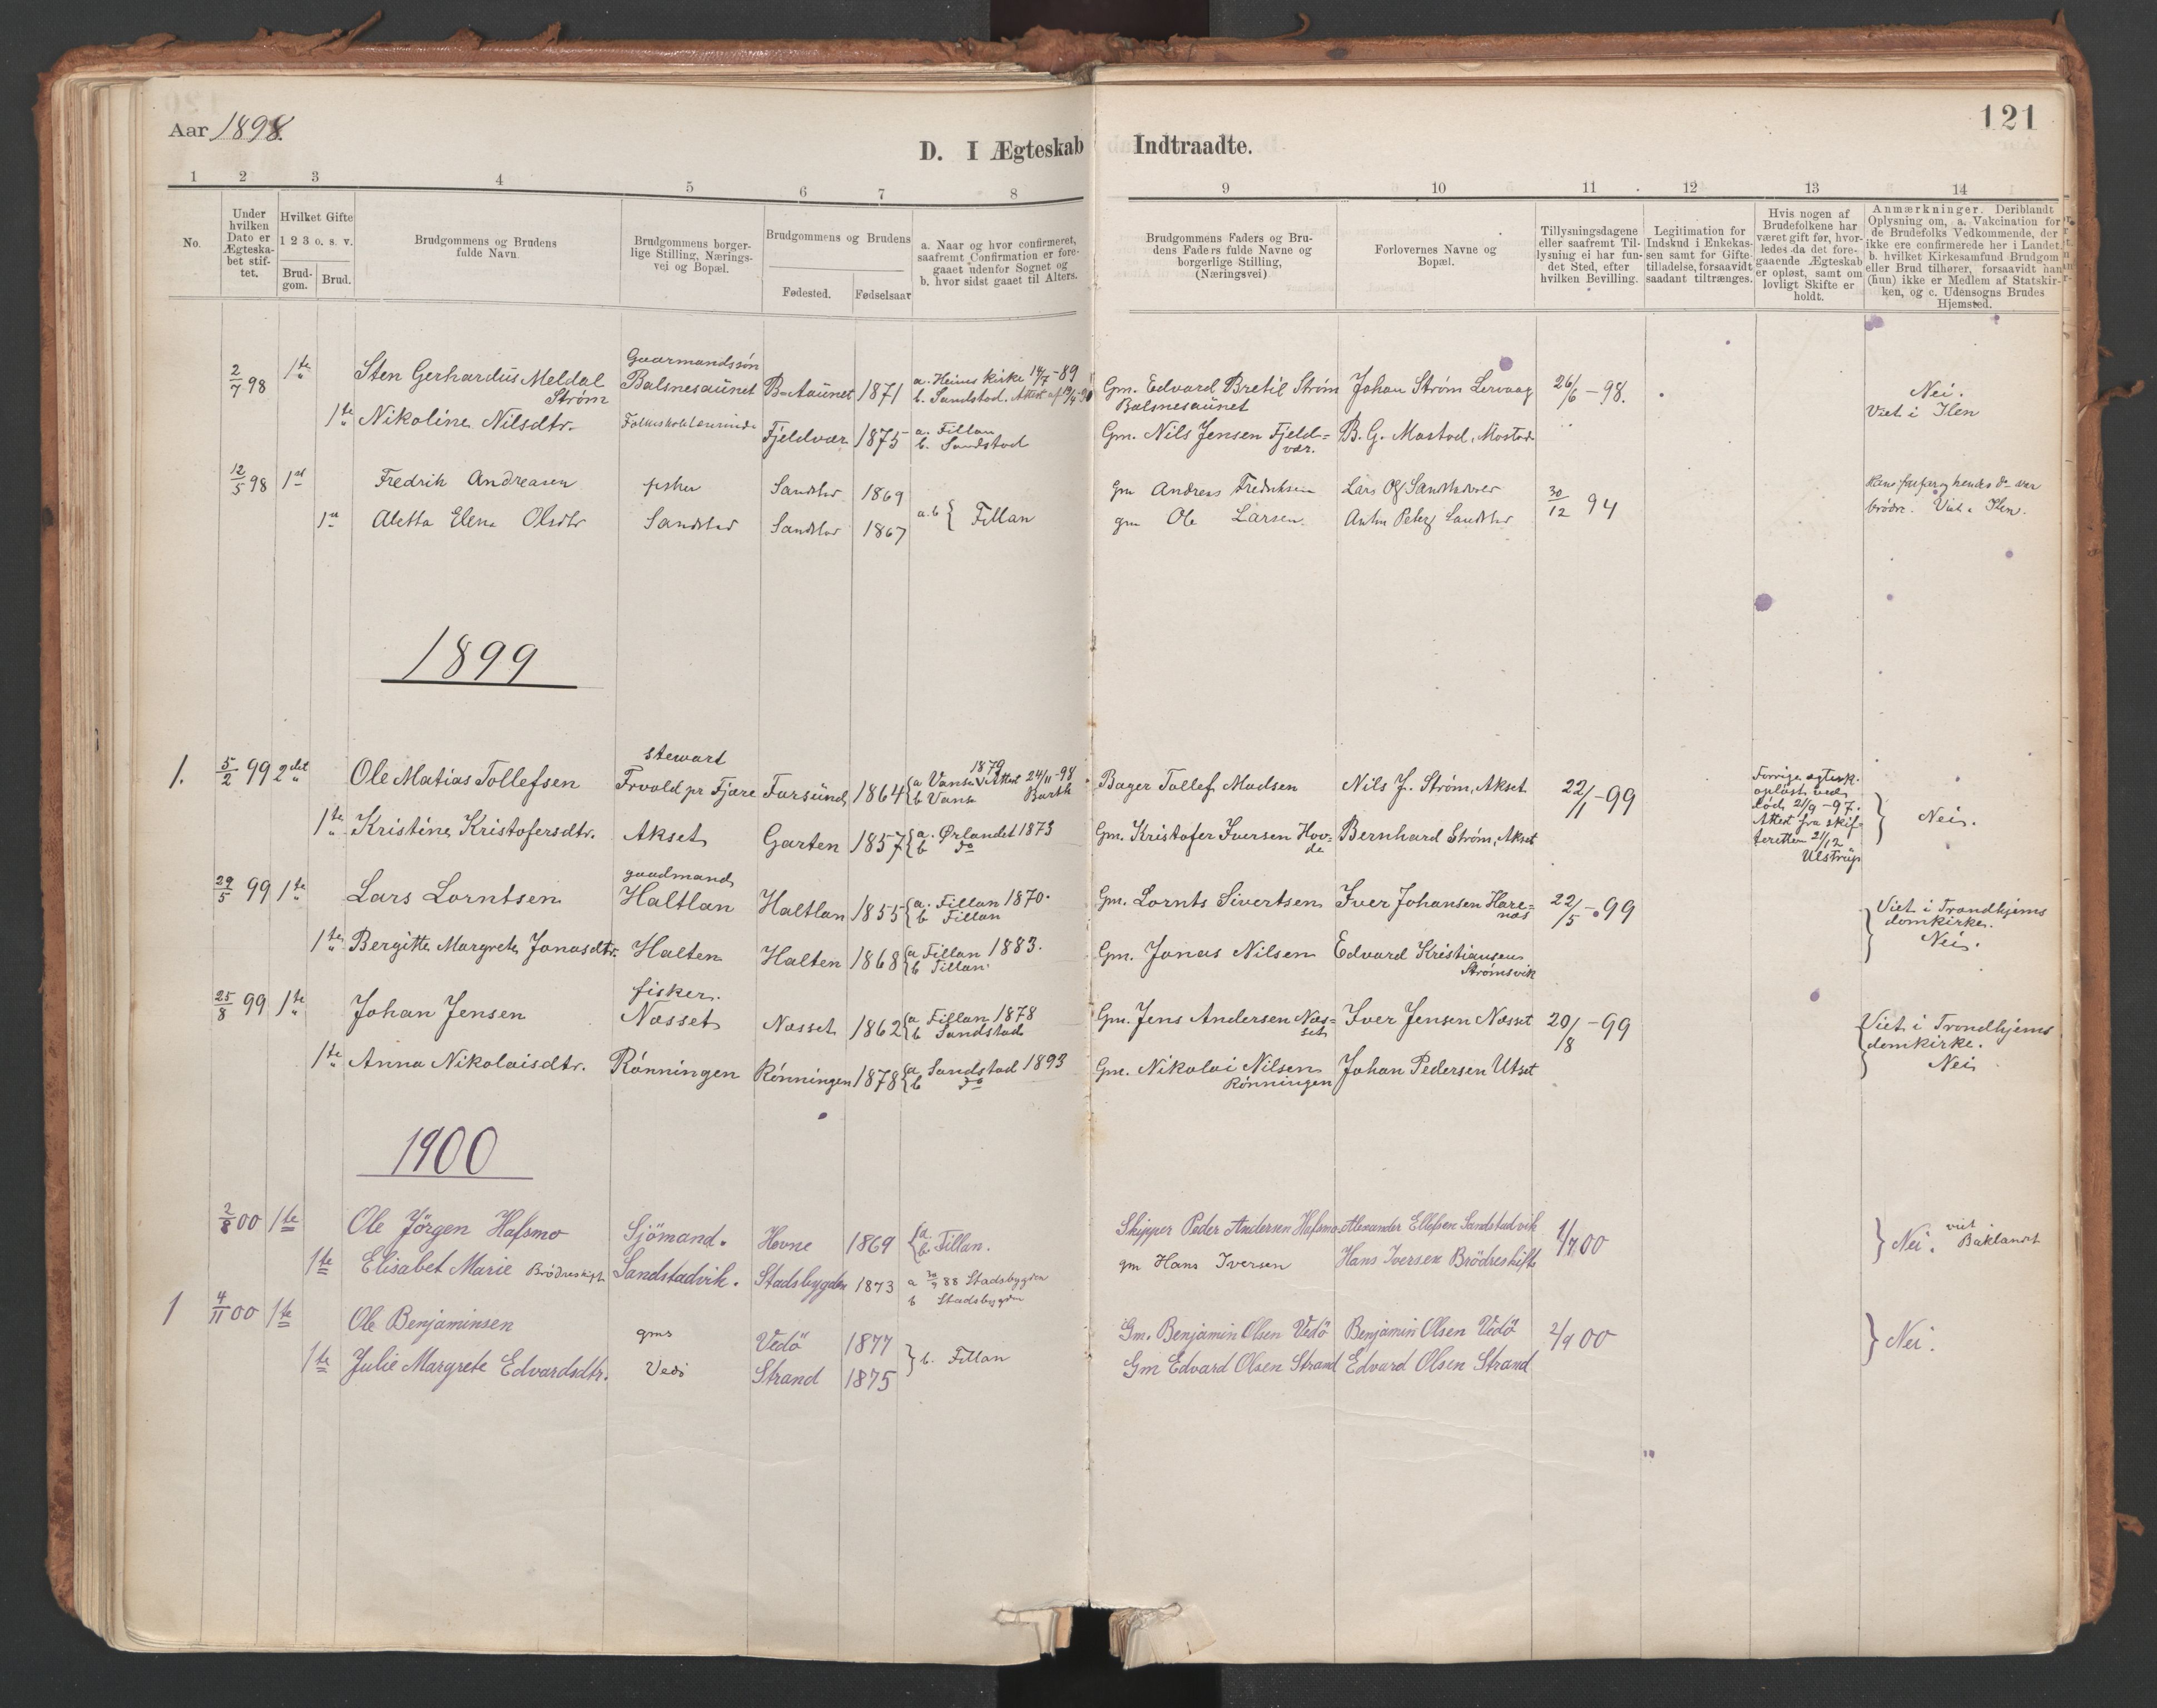 Aar 1898.
121
D. I Ægteskab Indtraadte.
1 2 3 4 5 6 7 8 9 10 11 12 13 14
No.
Under hvilken Dato er Ægteska-bet stif-tet.
Hvilket Gifte
1 2 3 o. s. v.
Brud-gom.
Brud.
Brudgommens og Brudens fulde Navn
Brudgommens borger-lige Stilling, Nærings-vei og Bopæl.
Brudgommens og Brudens
Fødested.
Fødselsaar
a. Naar og hvor confirmeret, saafremt Confirmation er fore-gaaet udenfor Sognet og
b. hvor sidst gaaet til Alters.
Brudgommens Faders og Bru-dens Faders fulde Navne og borgerlige Stilling, (Næringsvei)
Forlovernes Navne og Bopæl.
Tillysningsdagene eller saafremt Til-lysning ei har fun-det Sted, efter hvilken Bevilling.
Legitimation for Indskud i Enkekas-sen samt for Gifte-tilladelse, forsaavidt saadant tiltrænges.
Hvis nogen af Brudefolkene har været gift før, hvor-ledes da det fore-gaaende Ægteskab er opløst, samt om lovligt Skifte er holdt.
Anmærkninger. Deriblandt Oplysning om, a. Vakcination for de Brudefolks Vedkommende, der ikke ere confirmerede her i Landet, b. hvilket Kirkesamfund Brudgom eller Brud tilhører, forsaavidt han (hun) ikke er Medlem af Statskir-ken, og c. Udensogns Brudes Hjemsted.
2/7 98 1te Sten Gerhardus Meldal Strøm Gaarmandssøn Balsnesaunet B-Aaunet 1871 a. Heims kirke 14/7-89 b. Sandstad. Attest af Gm. Edvard Bretil Strøm Balsnesaunet Johan Strøm Lervaag 26/6-98. Nei. Viet i Ilen
1te Nikoline Nilsdtr. Fjeldvær 1875 a. Fillan b. Sandstad Gm. Nils Jensen Fjeld=vær. B. G. Mastad, Mastad
12/5 98 1st Fredrik Andreasen fisker Sandstad 1869 gm Andreas Fredriksen 30/12 94
1st Aletta Elena Olsdtr Sandstad Sandstad 1867 a.b { Fillan gm Ole Larsen brødre. Viet i Ilen.
1899
1. 5/2 99 2det Ole Matias Tollefsen stewart Frvold pr Fjære Farsund 1864 { a Vanse 1879 Attest 24/11-98 b Vanse Barth Bager Tollef Madsen Nils J. Strøm, Akset 22/1-99 Forrige ægtesk. opløst ved død 21/9-97. Attest fra skif-teretten 21/12 Ulstrup } Nei.
1te Kristine Kristofersdtr. Akset Garten 1857 { a. Ørlandet 1873 b do Gm. Kristofer Iversen Hov-de Bernhard Strøm, Akset
29/5 99 1te Lars Lorntsen gaadmand Haltlan Haltlan 1855 { a. Fillan 1870. b Fillan Gm. Lornts Sivertsen Iver Johansen Hare=nes 22/5-99 Viet i Trondhjems domkirke. Nei.
1te Bergitte Margrete Jonasdtr. Halten Halten 1868 { a Fillan 1883. b Fillan Gm. Jonas Nilsen Edvard Kristiansen Strømsvik
25/8 99 1te Johan Jensen fisker. Næsset Næsset 1862 { a Fillan 1878 b Sandstad Gm. Jens Andersen Næs=set Iver Jensen Næsset 20/8-99 Viet i Trondhjems domkirke. Nei
1te Anna Nikolaisdtr. Rønningen Rønningen 1878 { a Sandstad 1893 b do Gm. Nikolai Nilsen Rønningen Johan Pedersen Utset
1900
2/8 00 1te Ole Jörgen Hafsmo Sjömand. Hevne 1869 { a. b. Fillan. Skipper Peder Andersen Hafsmo Alexander Ellefsen Sandstadvik 1/7 00 } Nei. viet i Baklandet
1te Elisabet Marie Brödreskift Sandstadvik. Stadsbygden 1873 a 30/9 88 Stadsbygden b Stadsbygden gm Hans Iversen Hans Iversen Brödreskift
1 4/11 00 1te Ole Benjaminsen gms Vedö 1877 } b. Fillan Gm. Benjamin Olsen Vedö Benjamin Olsen Vedö 2/9 00 } Nei.
1te Julie Margrete Edvardsdtr. Vedö Strand 1875 Gm Edvard Olsen Strand Edvard Olsen Strand